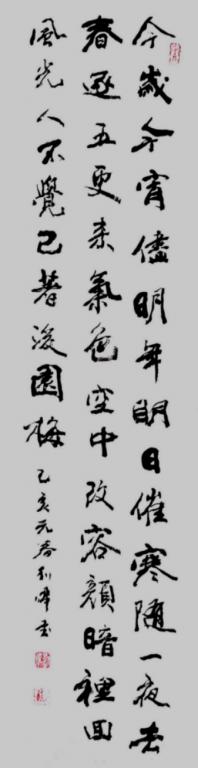 今歲今宵儘明年明日催寒隨一夜去
春逐五更来氣色空中改容顏暗裡回
風光人不覺已著後園梅
己亥元春利峰书